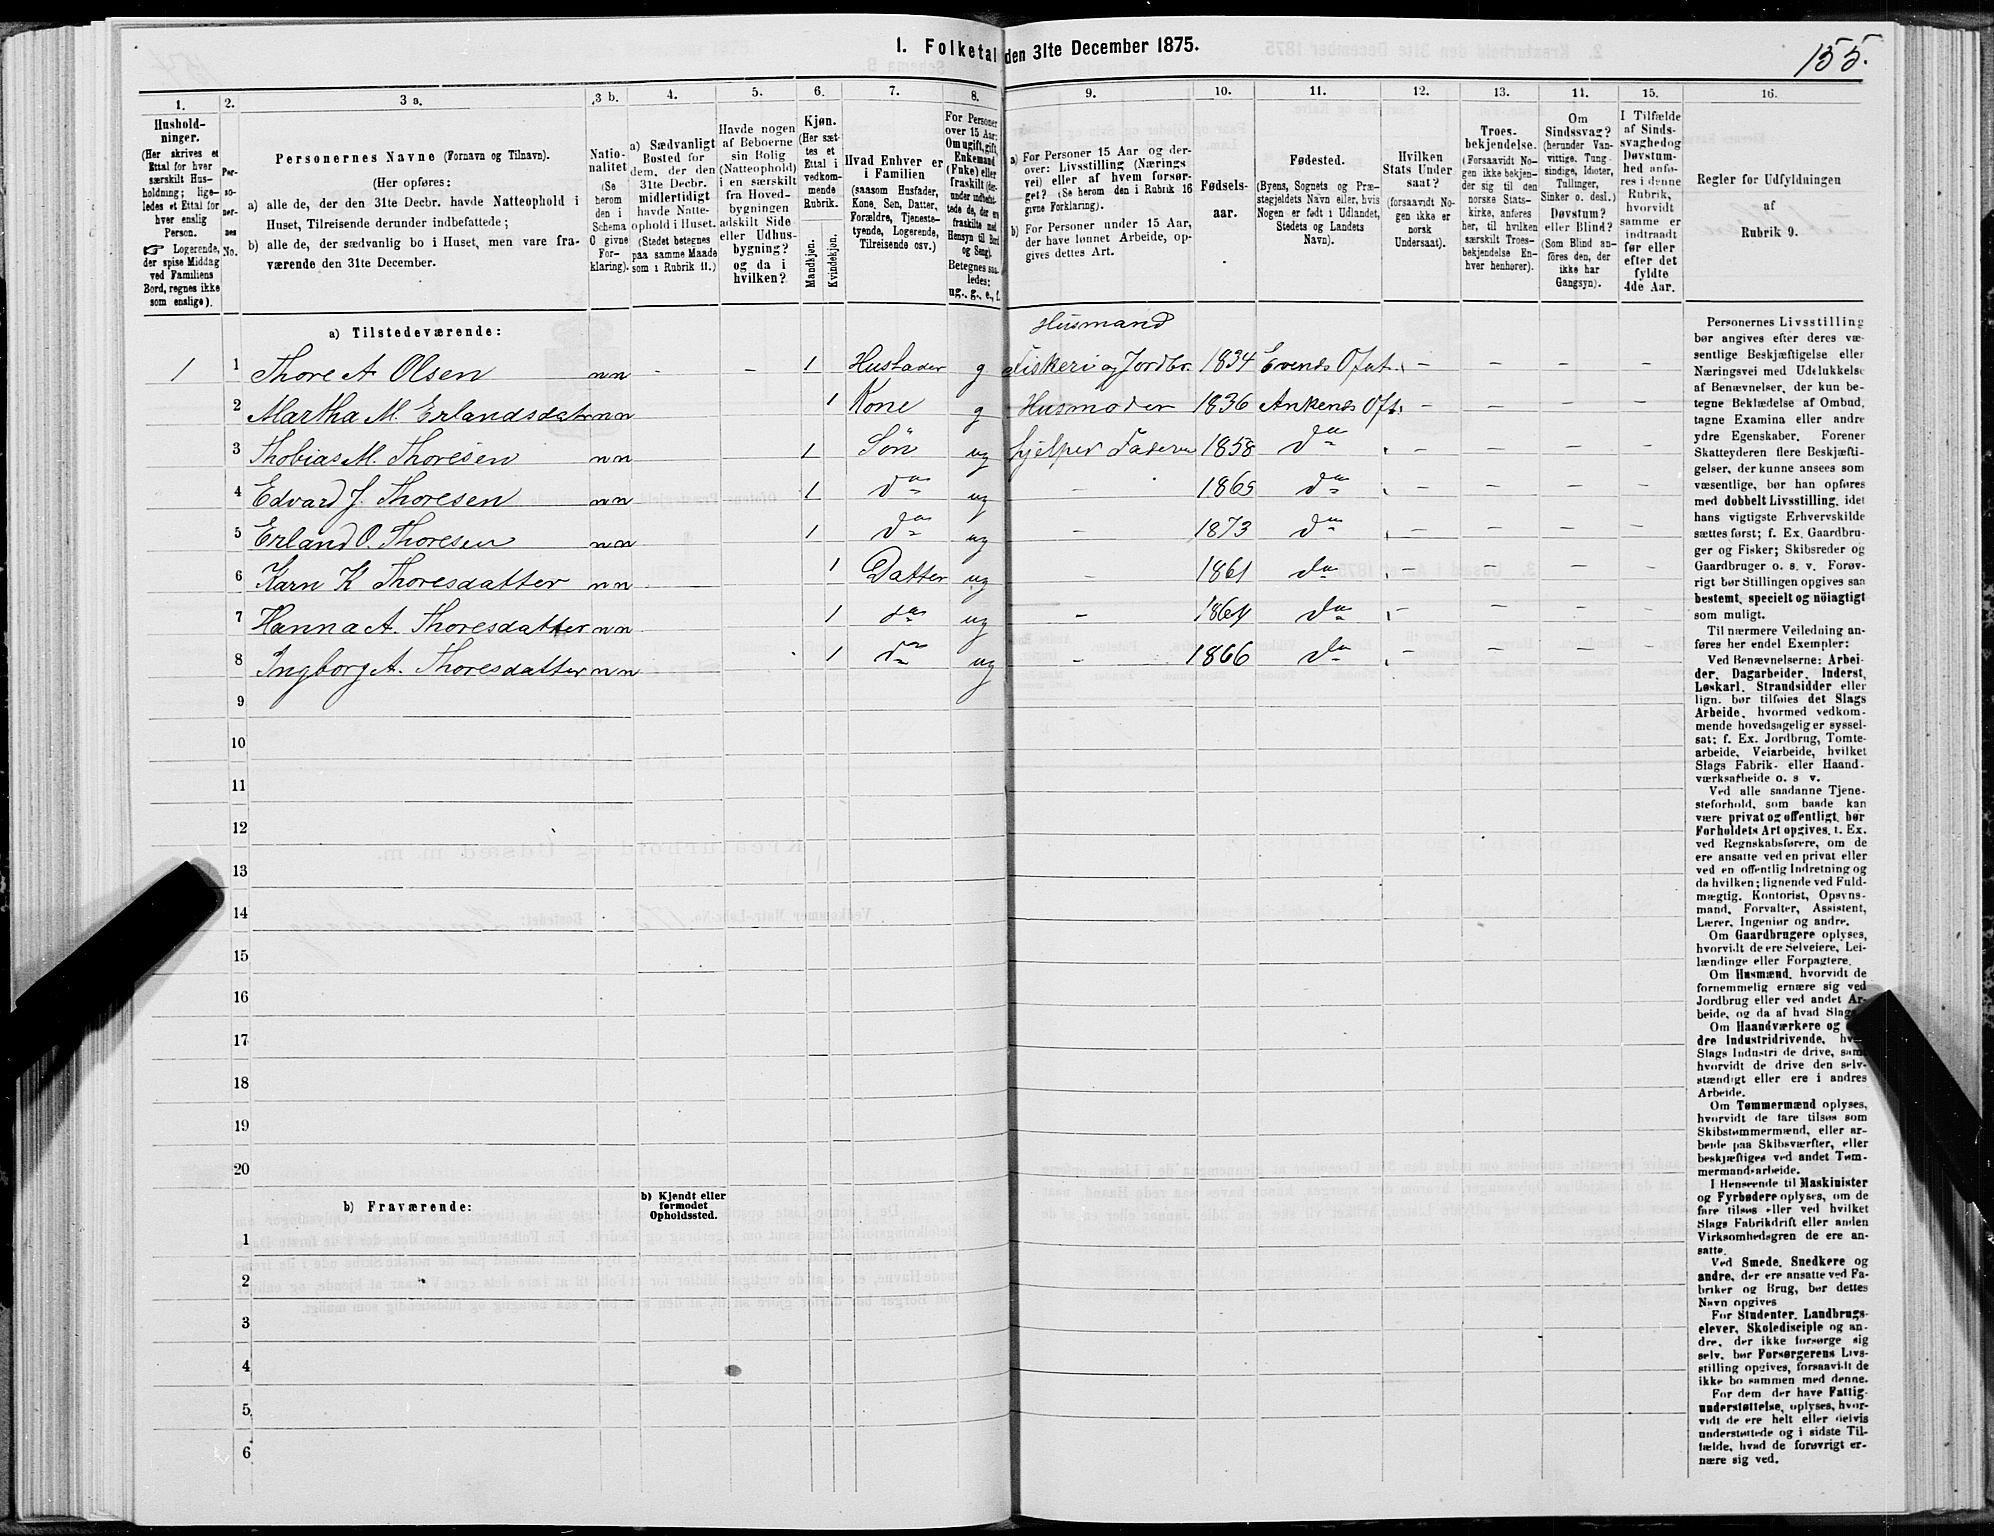 1. Folketal den 31te December 1875.
155.
1. 2. 3 a. 3 b. 4. 5. 6. 7. 8. 9. 10. 11. 12. 13. 11. 15. 16.
Hushold-
ninger.
(Her skrives et
Ettal for hver
særskilt Hus-
holdning; lige-
ledes et Ettal for
hver enslig
Person.
Logerende,
der spise Middag
ved Familiens
Bord, regnes ikke
som enslige).
Per-
so-
ner-
nes
No.
Personernes Navne (Fornavn og Tilnavn).
(Her opføres:
a) alle de, der den 31te Decbr. havde Natteophold i
Huset, Tilreisende derunder indbefattede;
b) alle de, der sædvanlig bo i Huset, men vare fra-
værende den 31te December.
Natio-
nalitet
(Se
herom
den i
Schema
C givne
For-
klaring).
a) Sædvanligt
Bosted for
dem, der den
31te Decbr.
midlertidigt
havde Natte-
ophold i Huset.
(Stedet betegnes
paa samme Maade
som i Rubrik 11.)
Havde nogen
af Beboerne
sin Bolig
(Natteophold)
i en særskilt
fra Hoved-
bygningen
adskilt Side-
eller Udhus-
bygning?
og da i
hvilken?
Kjøn.
(Her sæt-
tes et
Ettal i
vedkom-
mende
Rubrik.
Mandkjøn.
Kvindekjøn.
Hvad Enhver er
i Familien
(saasom Husfader,
Kone, Søn, Datter,
Forældre, Tjeneste-
tyende, Logerende,
Tilreisende osv.)
For Personer
over 15 Aar:
Om ugift, gift,
Enkemand
(Enke) eller
fraskilt
Betegnes saa-
ledes:
ug., g., e., f.
a) For Personer 15 Aar og der-
over: Livsstilling (Nærings
vei) eller af hvem forsør-
get? (Se herom den i Rubrik 16
givne Forklaring).
b) For Personer under 15 Aar,
der have lønnet Arbeide, op-
gives dettes Art.
Fødsels-
aar.
Fødested.
(Byens, Sognets og Præ-
stegjeldets Navn eller, hvis
Nogen er født i Udlandet,
Stedets og Landets
Navn).
Hvilken
Stats Under
saat?
(forsaavidt No-
gen ikke er
norsk
Undersaat).
Troes-
bekjendelse.
(Forsaavidt No-
gen ikke bekjen-
der sig til den
norske Stats-
kirke, anføres
her, til hvilken
særskilt Troes-
bekjendelse En-
hver henhører).
Om
Sindssvag?
(herunder Van-
vittige, Tung-
sindige, Idioter,
Tullinger,
Sinker o. desl.)
Døvstum?
eller Blind?
(Som Blind an-
føres den, der
ikke har
Gangsyn).
I Tilfælde
af Sinds-
svaghed og
Døvstum-
hed anfø-
res i denne
Rubrik,
hvorvidt
samme er
indtraadt
før eller
efter det
fyldte
4de Aar.
Regler for Udfyldningen
af
Rubrik 9.
a) Tilstedeværende:
Husmand
1 1 Thore A Olsen nn - - 1 Husfader g Fiskeri og Jordbr. 1834 Evenes Ofot. - - - -
2 Martha M. Erlandsdatr nn 1 Kone g Husmoder 1836 Ankenes Oft. - - - -
3 Thobias M. Thoresen nn 1 Søn ug hjelper Faderen 1858 do - - - -
4 Edvard J. Thoresen nn 1 do ug - 1869 do - - - -
5 Erland O. Thoresen nn 1 do ug - 1873 do - - - -
6 Karn K Thoresdatter nn 1 Datter ug - 1861 do - - - -
7 Hanna A. Thoresdatter nn 1 do ug - 1864 do - - - -
8 Ingborg A. Thoresdatter nn 1 do ug - 1866 do - - - -
9
10
11
12
13
14
15
16
17
18
19
20
b) Fraværende:
b) Kjendt eller
formodet
Opholdssted.
1
2
3
4
5
6
Personernes Livsstilling
bør angives efter deres væ-
sentlige Beskjæftigelse eller
Næringsvei med Udelukkelse
af Benævnelser, der kun be-
tegne Beklædelse af Ombud,
tagne Examina eller andre
ydre Egenskaber. Forener
Skatteyderen flere Beskjæfti-
gelser, der kunne ansees som
væsentlige, bør han opføres
med dobbelt Livsstilling, idet
hans vigtigste Erhvervskilde
sættes først; f. Ex. Gaardbru-
ger og Fisker; Skibsreder og
Gaardbruger o. s. v. Forøv-
rigt bør Stillingen opgives saa
bestemt, specielt og nöiagtigt
som muligt.
Til nærmere Veiledning an-
føres her endel Exempler:
Ved Benævnelserne: Arbei-
der, Dagarbeider, Inderst,
Løskarl, Strandsidder eller
lign. bør tilføies det Slags
Arbeide, hvormed vedkom-
mende hovedsagelig er syssel-
sat; f. Ex. Jordbrug, Tomte-
arbeide, Veiarbeide, hvilket
Slags Fabrik- eller Haand-
værksarbeide o. s v.
Ved alle saadanne Tjene-
steforhold, som baade kan
være privat og offentligt, bør
Forholdets Art opgives, t. Ex.
ved Regnskabsførere, om de
ere ansatte ved en privat eller
ved en offentlig Indretning og
da hvilken; lignende ved Fuld-
mægtig, Kontorist, Opsyns-
mand, Forvalter, Assistent,
Lærer, Ingeniør og andre.
Om Gaardbrugere oplyses,
hvorvidt de ere Selveiere, Lei-
lændinge eller Forpagtere.
Om Husmænd, hvorvidt de
fornemmelig ernære sig ved
Jordbrug eller ved andet Ar-
beide, og da af hvad Slags.
Om Haandværkere og
dre Industridrivende, hv
Slags Industri de drive, samt
hvorvidt de drive den selv-
stændigt eller ere i andres
Arbeide.
Om Tømmermænd oplyses,
hvorvidt de fare tilsøs som
Skibstømmermænd, eller ar-
beide paa Skibsværfter, eller
beskjæftiges ved andet Tøm-
mermandsarbeide.
I Henseende til Maskinister
og Fyrbødere oplyses, om de
fare tilsøs eller ved hvilket
Slags Fabrikdrift eller anden
Virksomhedsgren de ere an-
satte.
Ved Smede, Snedkere og
andre, der ere ansatte ved Fa-
briker og Brug, bør dettes
Navn opgives
For Studenter, Landbrugs-
elever, Skoledisciple og an-
dre, der ikke forsørge sig
selv, bør Forsørgerens Livs-
stilling opgives, forsaavidt de
ikke bo sammen med denne.
For dem, der have Fattig-
understøttelse, oplyses, hvor-
vidt de ere helt eller delvis
understøttede og i sidste Til-
fælde, hvad de forøvrigt er-
nære sig ved.